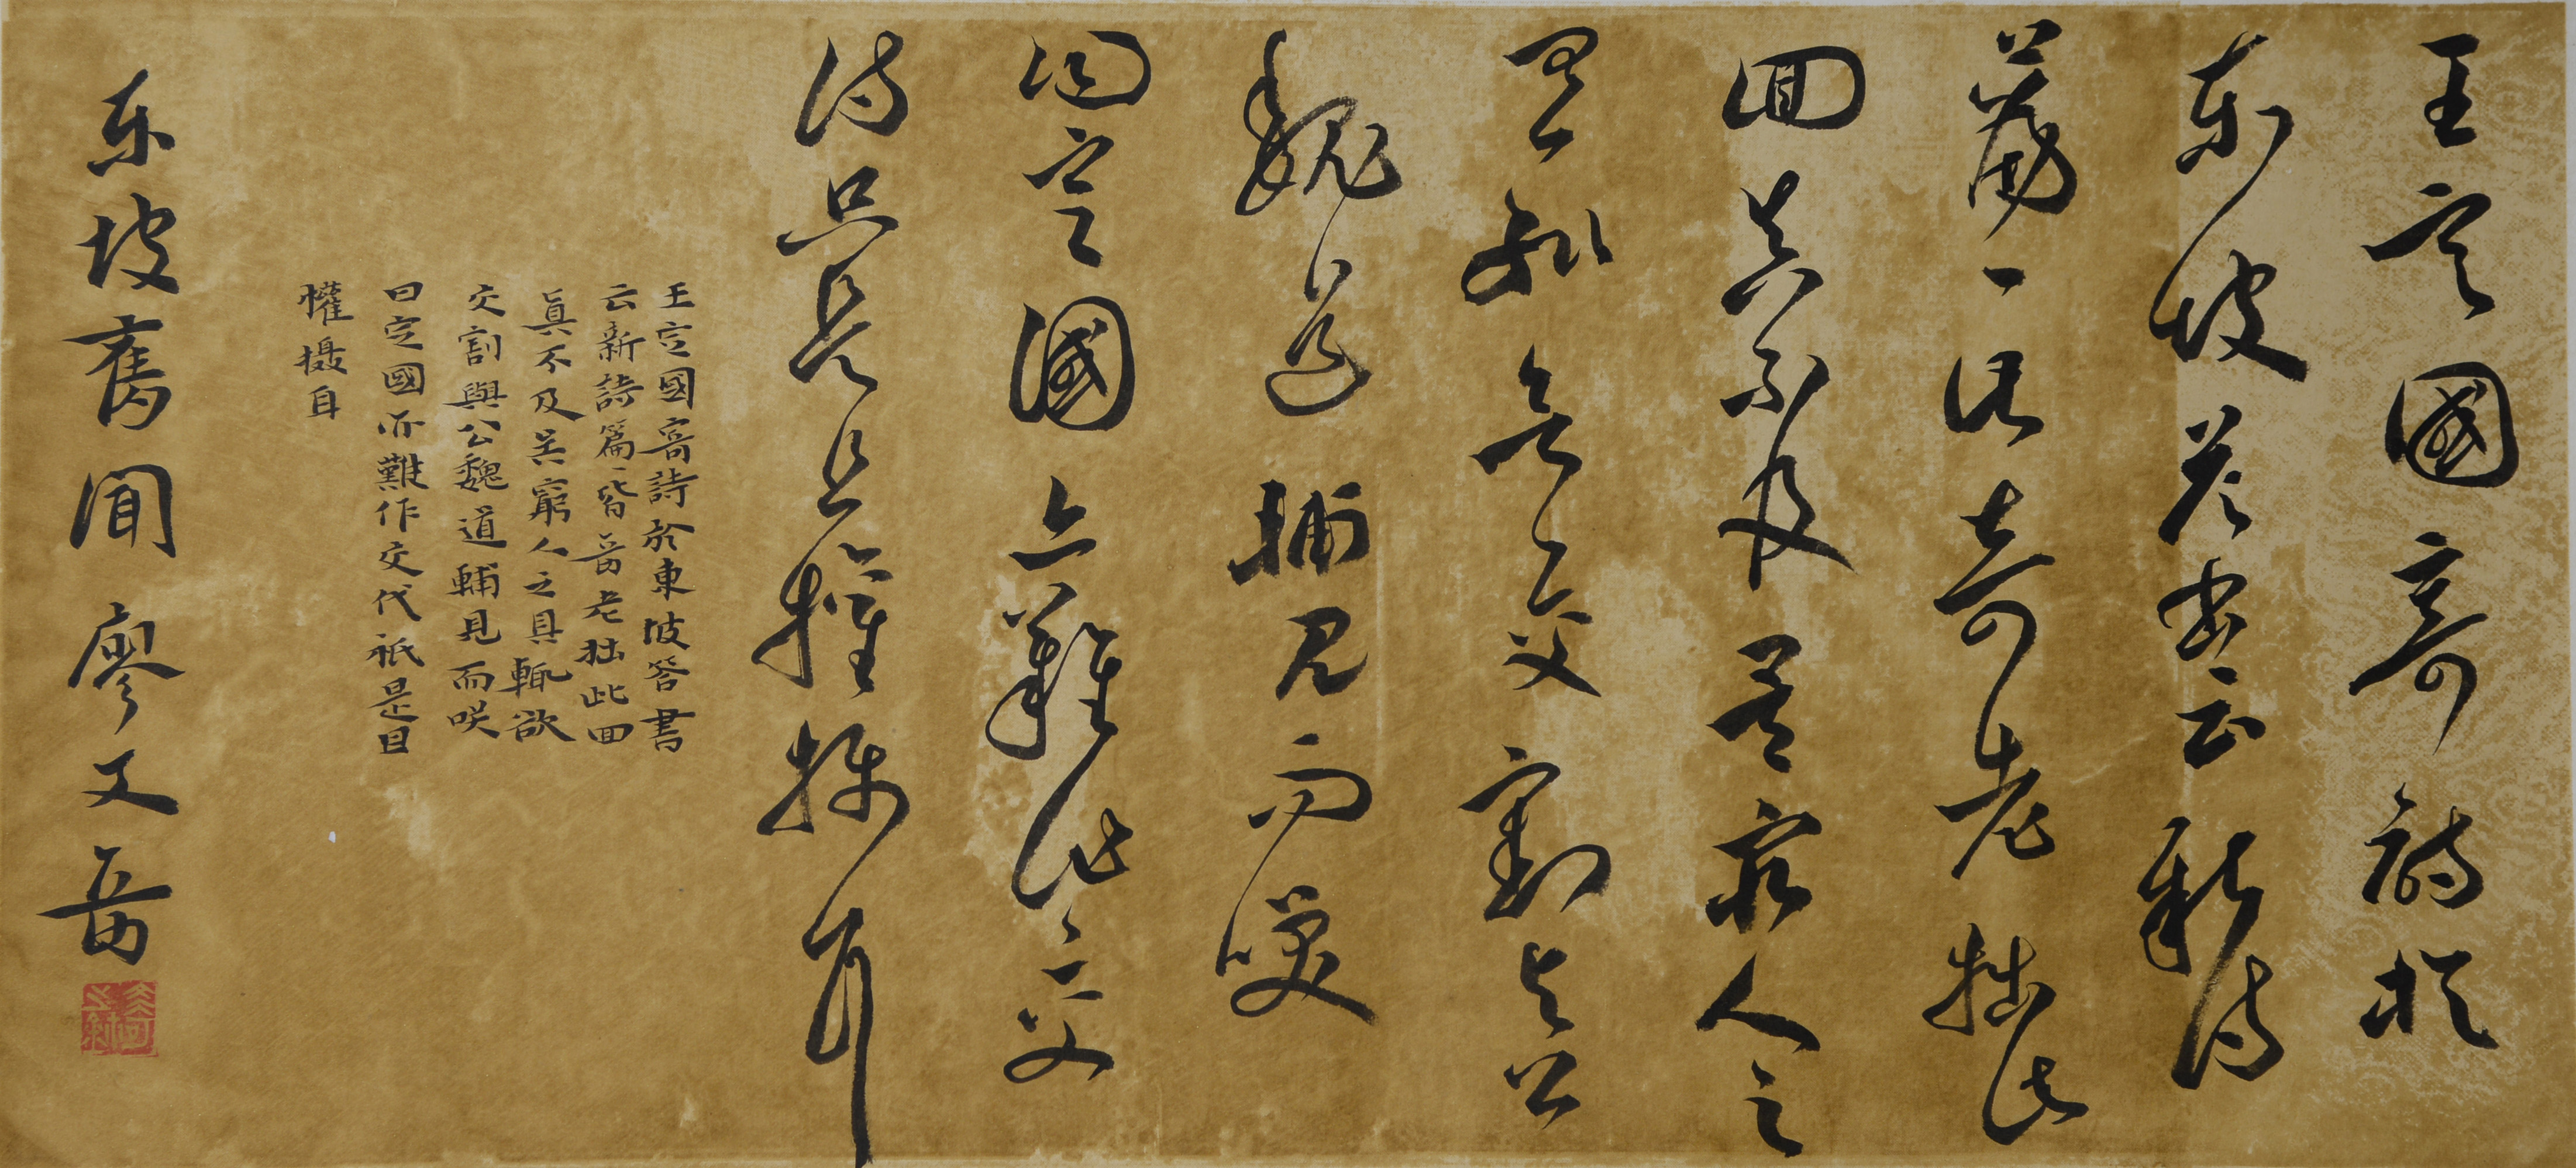 王定國寄詩於
東坡答書云新詩
篇々皆奇老拙此
回真不及吾窮人之
具輒欲交割與公
魏道輔見而笑
曰定國亦難作交
待只是且權攝耳
王定國寄詩於東坡答書
云新詩篇々皆奇老拙此回
真不及吾窮人之具輒欲
交割與公魏道輔見而咲
曰定國亦難作交代祇是且
權攝耳
東坡舊聞廖又奇